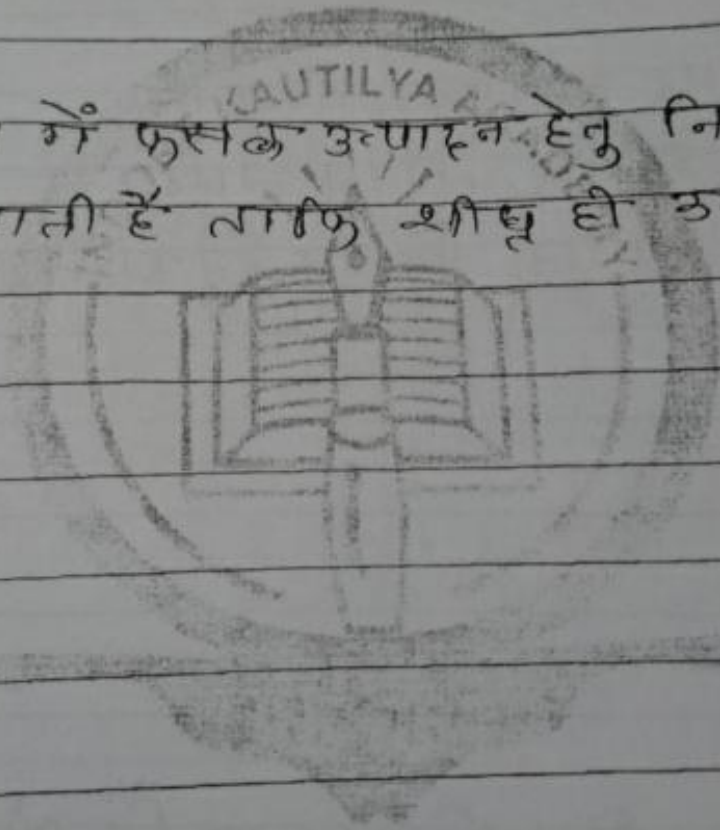 KAUTILYA
में फसल उत्पादन हेतु नि
ाती है ताकि शीघ्र ही उ